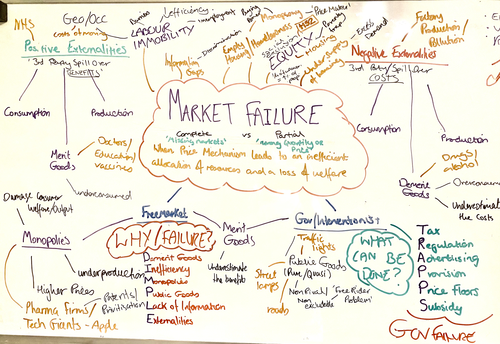 NHS
Geo/Occ
costs of moving
LABOUR
IMMOBILITY
Inefficiency
Unemployment
Monopoly
EQUITY
HS2
Housing
Poverty
trap
Excess
Demand
Factory
Production/
Pollution
Positive Externalities
3rd Party Spill Over
BENEFITS
Information
Gaps
Empty
Housing
Under supply
of housing
Negative Externalities
3rd Party/Spill Over
COSTS
MARKET FAILURE
Complete vs Partial
'Missing markets' 'wrong quantity or
Price'
When Price Mechanism leads to an inefficient
allocation of resources and a loss of welfare
Consumption
Production
Merit
Goods
Doctors/
Education/
vaccines
underconsumed
Consumption
Production
Demerit
Goods
Drugs/
alcohol
Overconsumed
Underestimate
the Costs
Damage Consumer
Welfare/Output
Monopolies
Higher Prices
underproduction
Patents/
Privitisation
Pharma Firms/
Tech Giants - Apple
Freemarket
WHY/FAILURE?
Demerit Goods
Inefficiency
Monopolies
Public Goods
Lack of Information
Externalities
Merit
Goods
Underestimate
the benefits
Gov/Interventions?
Traffic
lights
Public Goods
(Pure/Quasi)
Street
lamps
roads
Non Rival/
Non
excludable
'Free Rider
Problem'
WHAT
CAN BE
DONE?
Tax
Regulation
Advertising
Provision
Price Floors
Subsidy
GOV FAILURE